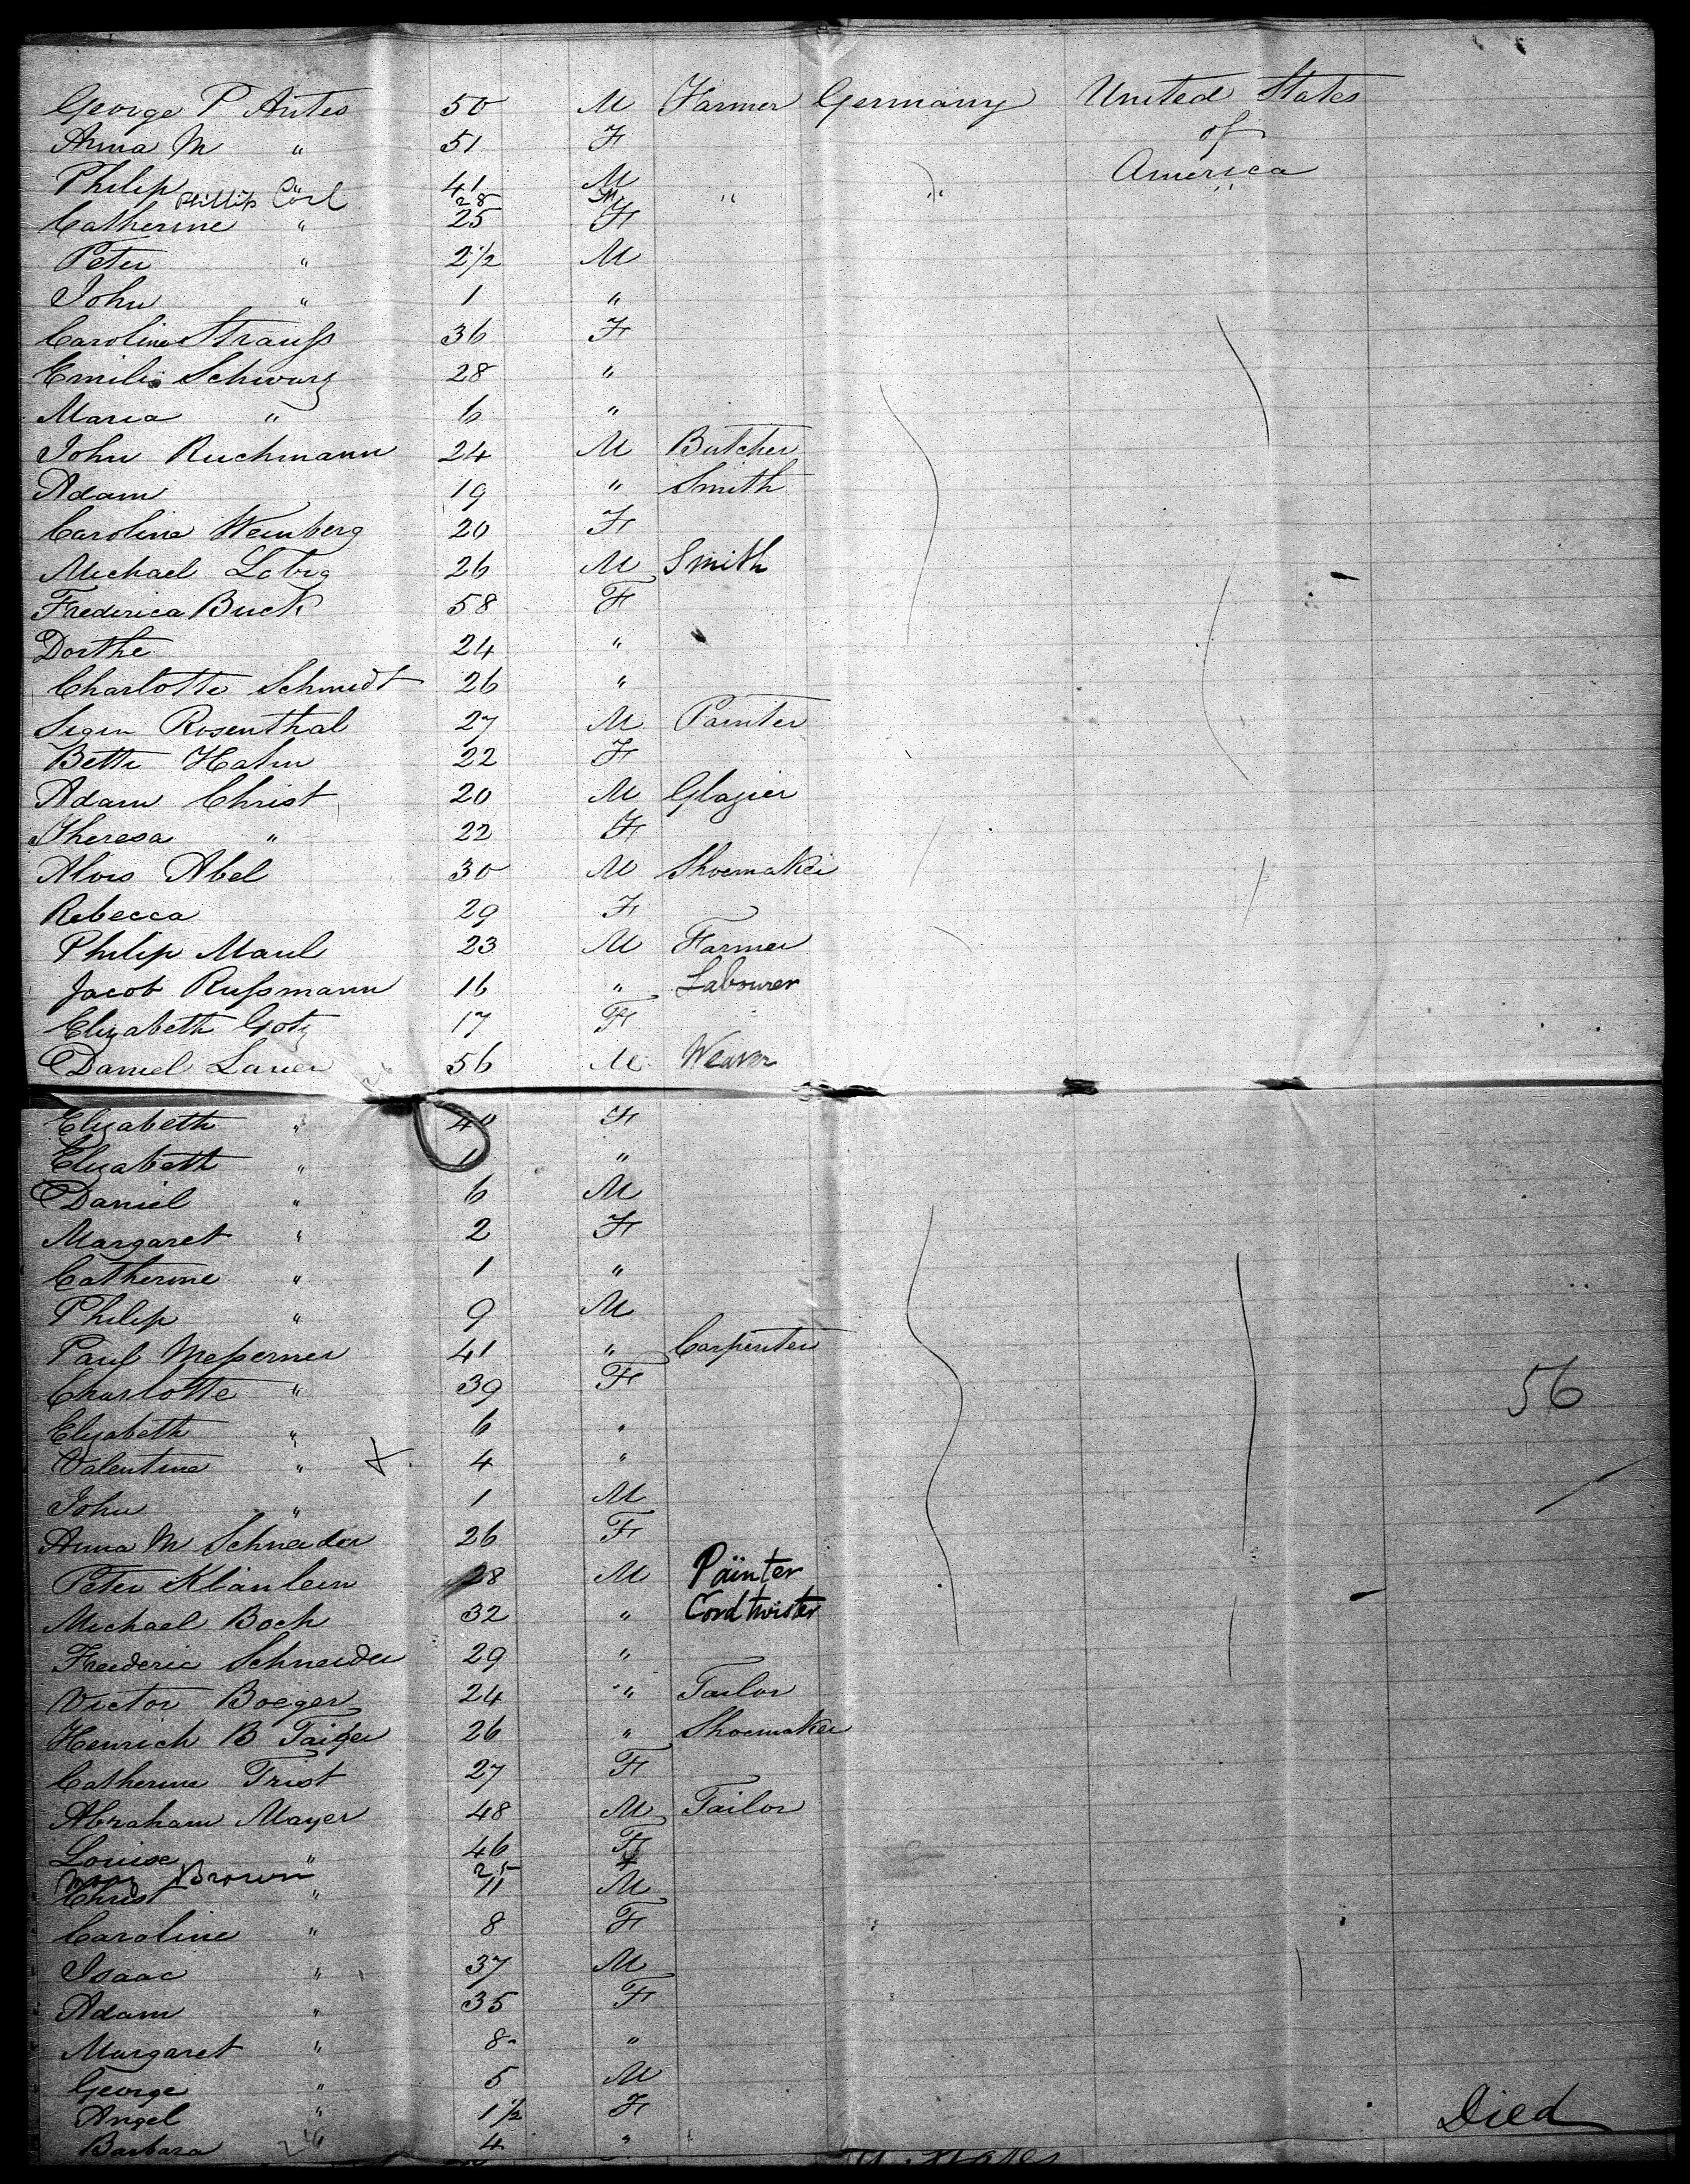 George P Antes 50 M Farmer Germany United States
Anna M " 51 F of
Philip " 41 M America
Phillip Carl 28 M " " "
Catherine " 25 F
Peter " 2 1/2 M
John " 1 "
Caroline Strauß 36 F
Emilie Schwarz 28 "
Maria " 6 "
John Ruchmann 24 M Butcher
Adam 19 " Smith
Carolina Weinberg 20 F
Michael 26 M Smith
Frederica Buck 58 F
Dorthe 24 "
Charlotte Schmidt 26 "
Rosenthal 27 M Painter
Bette Hahn 22 F
Adam Christ 20 M Glazier
Theresa " 22 F
Alois Abel 30 M Shoemaker
Rebecca 29 F
Philip Maul 23 M Farmer
Jacob Rußmann 16 " Labourer
Elizabeth Gotz 17 F
Daniel Lauer 56 M Weaver
Elizabeth " 40 F
Elizabeth " "
Daniel " 6 M
Margaret " 2 F
Catherine " 1 "
Philip " 9 M
Paul Meßerner 41 " Carpenter
Charlotte " 39 F 56
Elizabeth " 6 "
Valentine " X 4 "
John " 1 M
Anna M Schneider 26 F
Peter Klänlein 28 M Painter
Michael Boch 32 " Cord twister
Frederic Schneider 29 "
Victor Boeger 24 " Tailor
Henrich B Taiger 26 " Shoemaker
Catherine Trist 27 F
Abraham Mayer 48 M Tailor
Louise " 46 F
Mary Brown 25 F
Christ " 11 M
Caroline " 8 F
Isaac " 37 M
Adam " 35 F
Margaret " 8 "
George " 5 M
Angel " 1 1/2 F Died
Barbara " 4 "